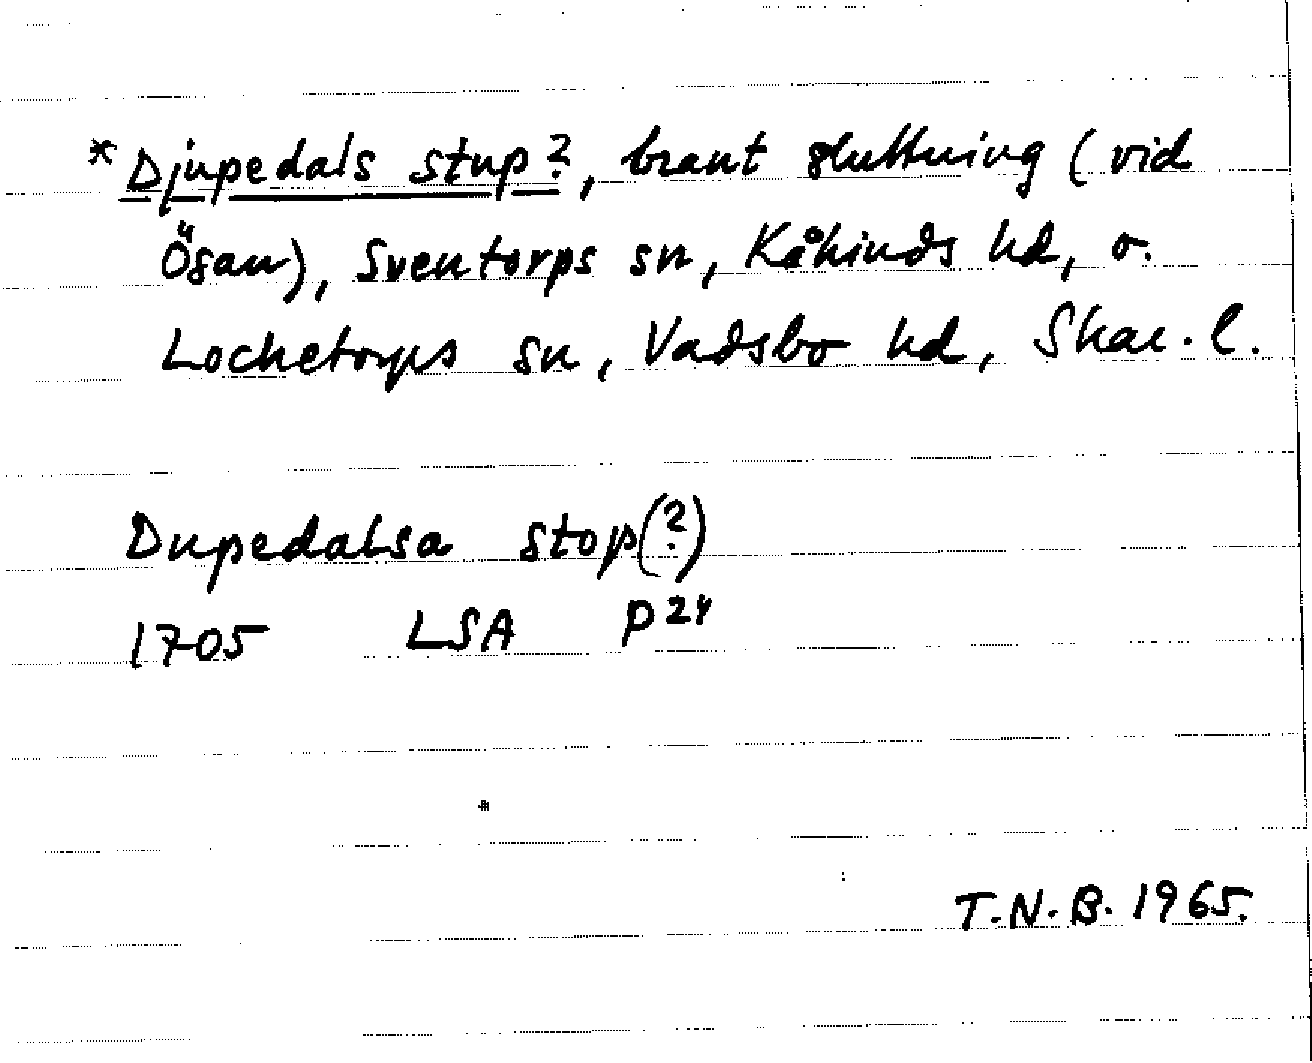 *Djupedals stup?, brant sluttning (vid
Ösan), Sventorps sn, Kåkinds hd, o.
Locketorps sn, Vadsbo hd, Skar. l.
Dupedalsa stop(?)
1705 LSA P24
T.N.B. 1965.